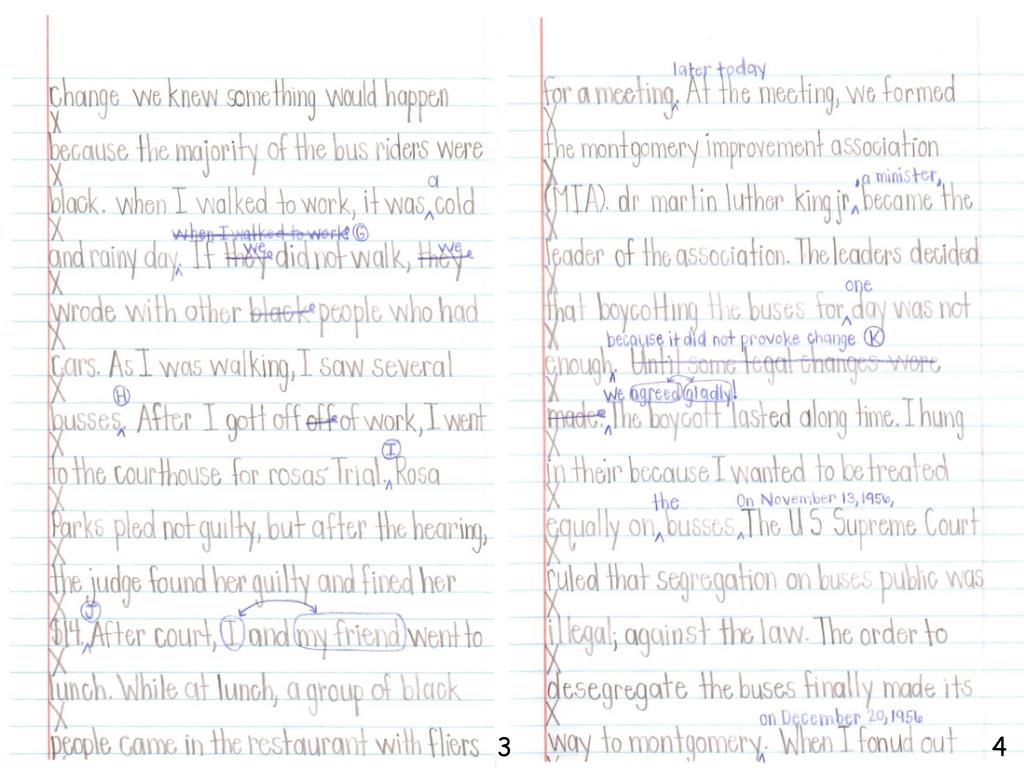 change we knew something would happen
because the majority of the bus riders were
a
black. when I walked to work, it was cold
when I walked to work! G
we we
and rainy day. If they did not walk, they
wrode with other black people who had
cars. As I was walking, I saw several
H
busses. After I gott off off of work, I went
I
to the courthouse for rosas Trial. Rosa
Parks pled not guilty, but after the hearing,
the judge found her guilty and fined her
J
$14. After court, I and my friend went to
lunch. While at lunch, a group of black
people came in the restaurant with fliers
3
later today
for a meeting. At the meeting, we formed
the montgomery improvement association
, a minister,
(MIA). dr martin luther king jr became the
leader of the association. The leaders decided
one
that boycotting the buses for day was not
because it did not provoke change K
enough. Until some legal changes were
we agreed gladly!
made. The boycott lasted along time. I hung
in their because I wanted to be treated
the On November 13, 1956,
equally on busses. The US Supreme Court
ruled that segregation on buses public was
illegal; against the law. The order to
desegregate the buses finally made its
on December 20, 1956
way to montgomery. When I fonud out
4